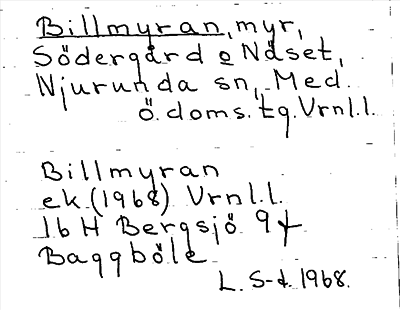 Billmyran, myr,
Södergård o Näset,
Njurunda sn, Med.
ö. doms. tg. Vrnl.l.
Billmyran
ek. (1968) Vrnl.l.
16 H Bergsjö 9f
Baggböle
L. S-d. 1968.